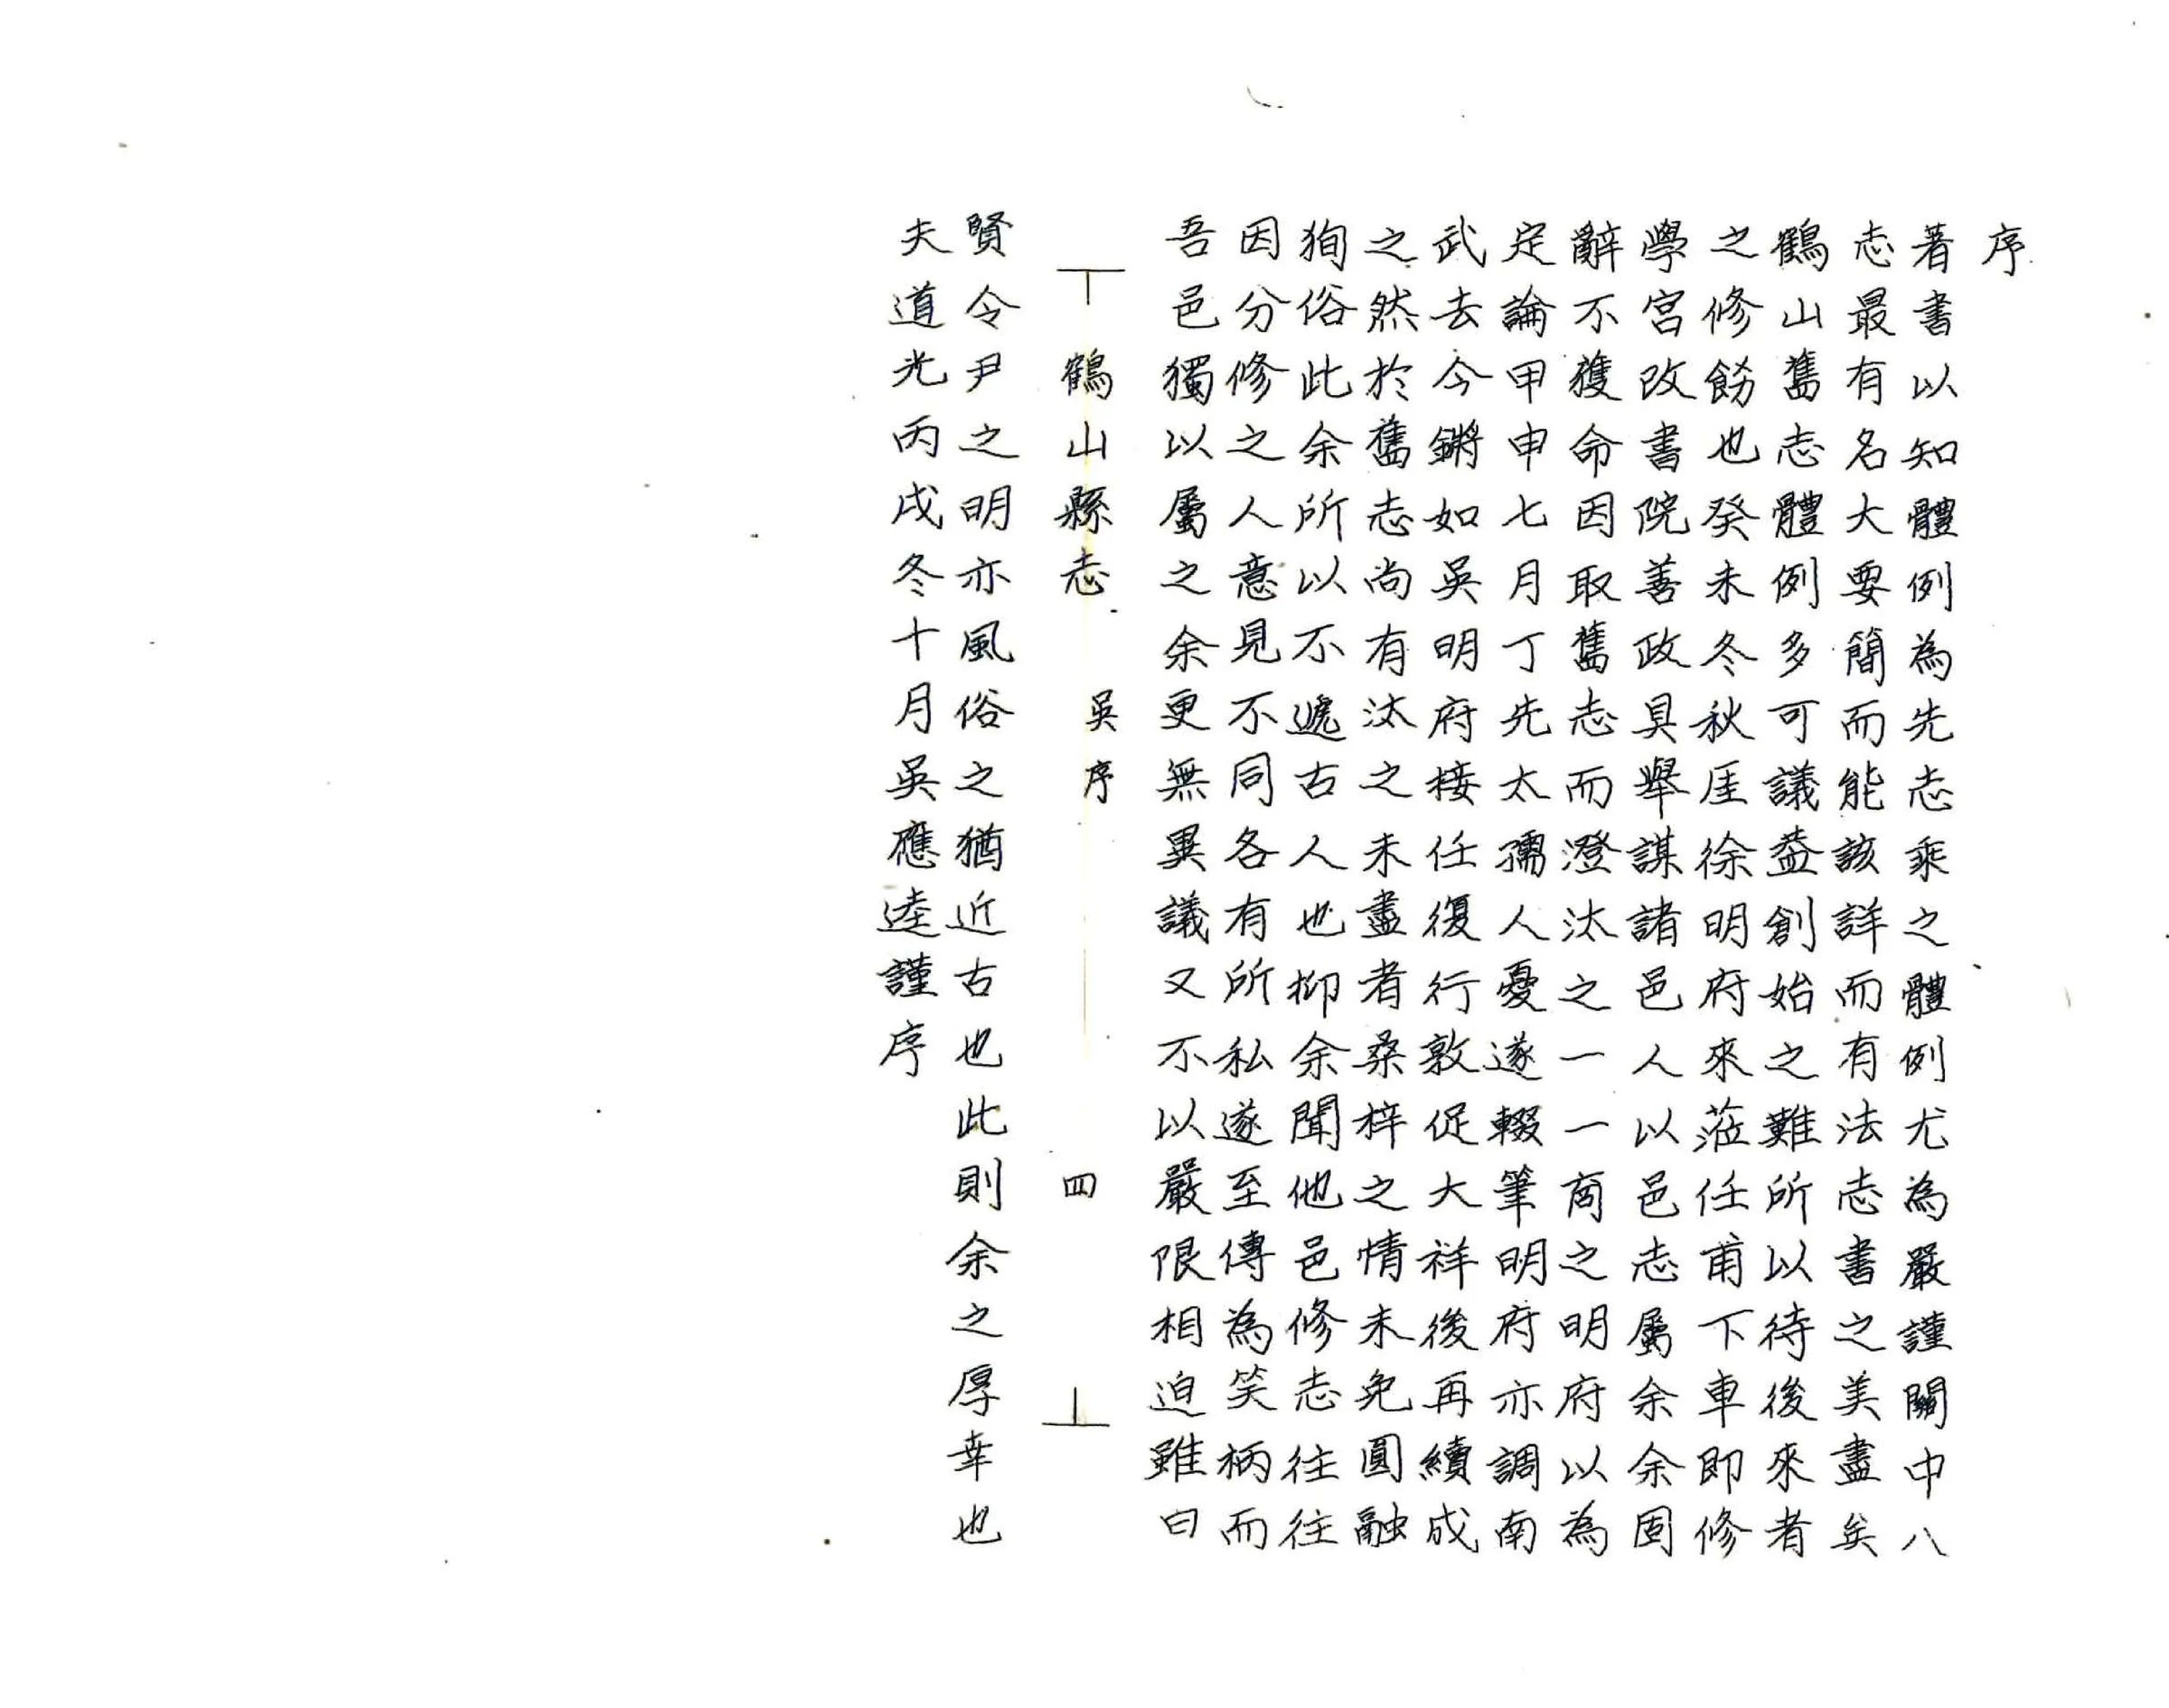 序
著書以知體例為先志乘之體例尤為嚴謹關中八
志最有名大要簡而能該詳而有法志書之美盡矣
鶴山舊志體例多可議葢創始之難所以待後來者
之修餝也癸未冬秋厓徐明府來蒞任甫下車即修
學宮改書院善政具舉謀諸邑人以邑志屬余余固
辭不獲命因取舊志而澄汰之一一商之明府以為
定論甲申七月丁先太孺人憂遂輟筆明府亦調南
武去今鏘如吳明府接任復行敦促大祥後再續成
之然於舊志尚有汰之未盡者桑梓之情未免圓融
狥俗此余所以不遞古人也抑余聞他邑修志往往
因分修之人意見不同各有所私遂至傳為笑柄而
吾邑獨以屬之余更無異議又不以嚴限相迫雖曰
鶴山縣志 吳序 四
賢令尹之明亦風俗之猶近古也此則余之厚幸也
夫道光丙戌冬十月吳應逵謹序